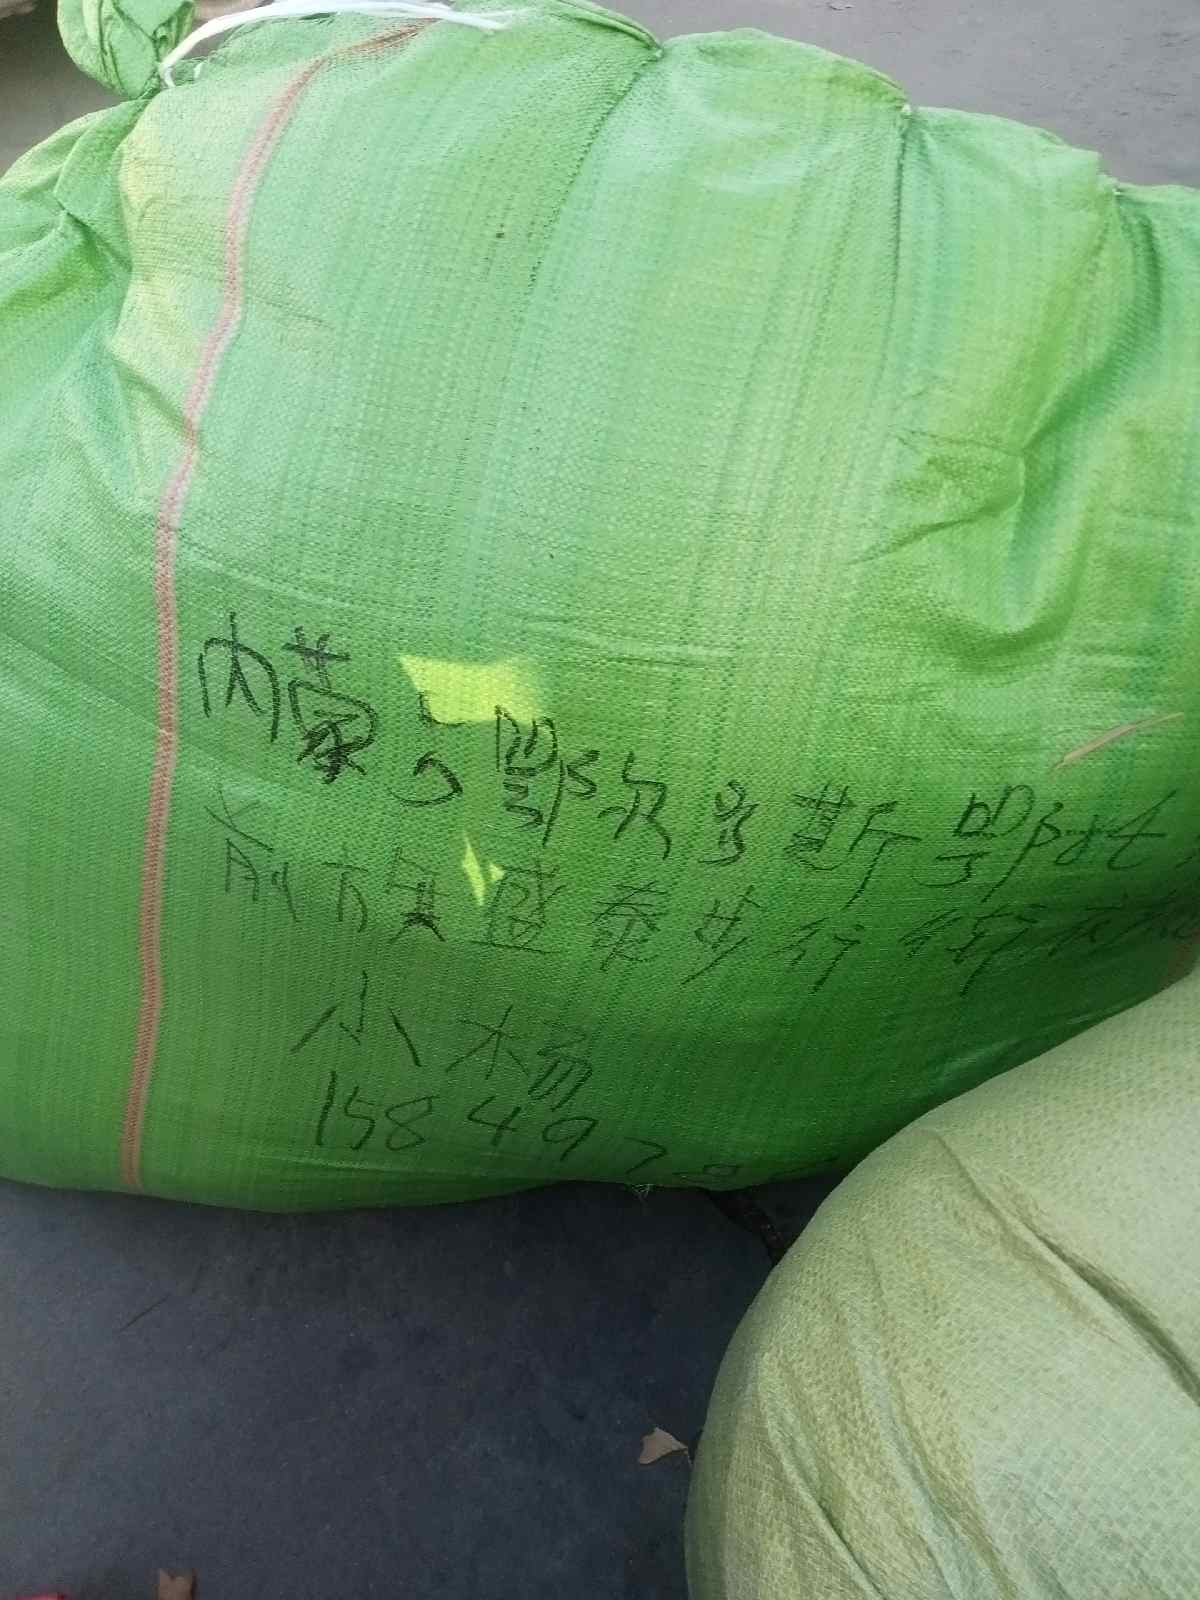 内蒙古鄂尔多斯鄂托
前旗盛泰步行街衣
小杨
158497